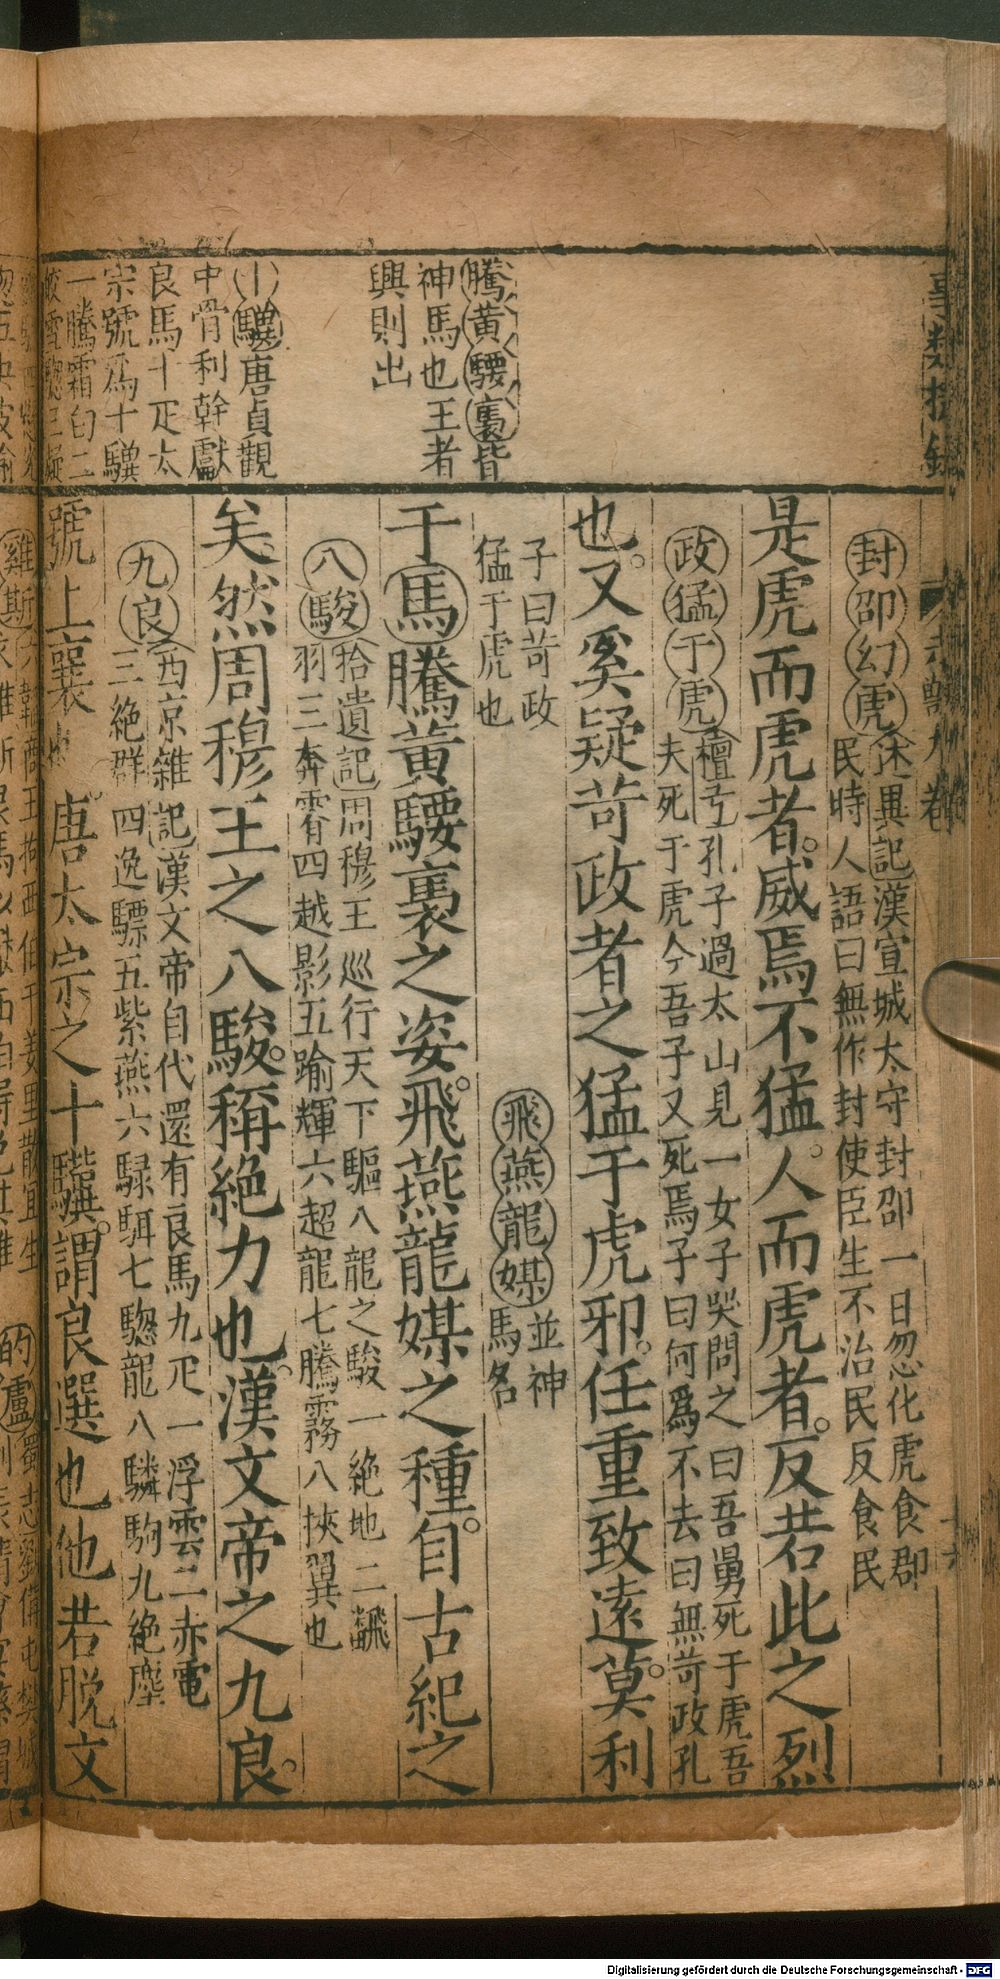 騰黃騕褭皆
神馬也王者
興則出
十驥唐貞觀
中骨利幹獻
良馬十疋太
宗號爲十驥
一騰霜白二
封卲幻虎
述異記漢宣城太守封卲一日忽化虎食郡
民時人語曰無作封使臣生不治民反食民
是虎而虎者。威焉不猛。人而虎者。反若此之烈
政猛于虎
檀弓孔子過太山見一女子哭問之曰吾舅死于虎吾
夫死于虎今吾子又死焉子曰何爲不去曰無苛政孔
也。又奚疑苛政者之猛于虎邪。任重致遠。莫利
子曰苛政
猛于虎也
飛燕龍媒
並神
馬名
于馬騰黃騕褭之姿。飛燕龍媒之種。自古紀之
八駿
拾遺記周穆王巡行天下驅八龍之駿一絶地二飜
羽三奔霄四越影五踰輝六超龍七騰霧八挾翼也
矣。然周穆王之八駿。稱絶力也。漢文帝之九良。
九良
西京雜記漢文帝自代還有良馬九疋一浮雲二赤電
三絶群四逸驃五紫燕六騄駬七驄龍八驎駒九絶塵
號上襄也。唐太宗之十驥。謂良選也他若脱文
Digitalisierung gefördert durch die Deutsche Forschungsgemeinschaft - DFG